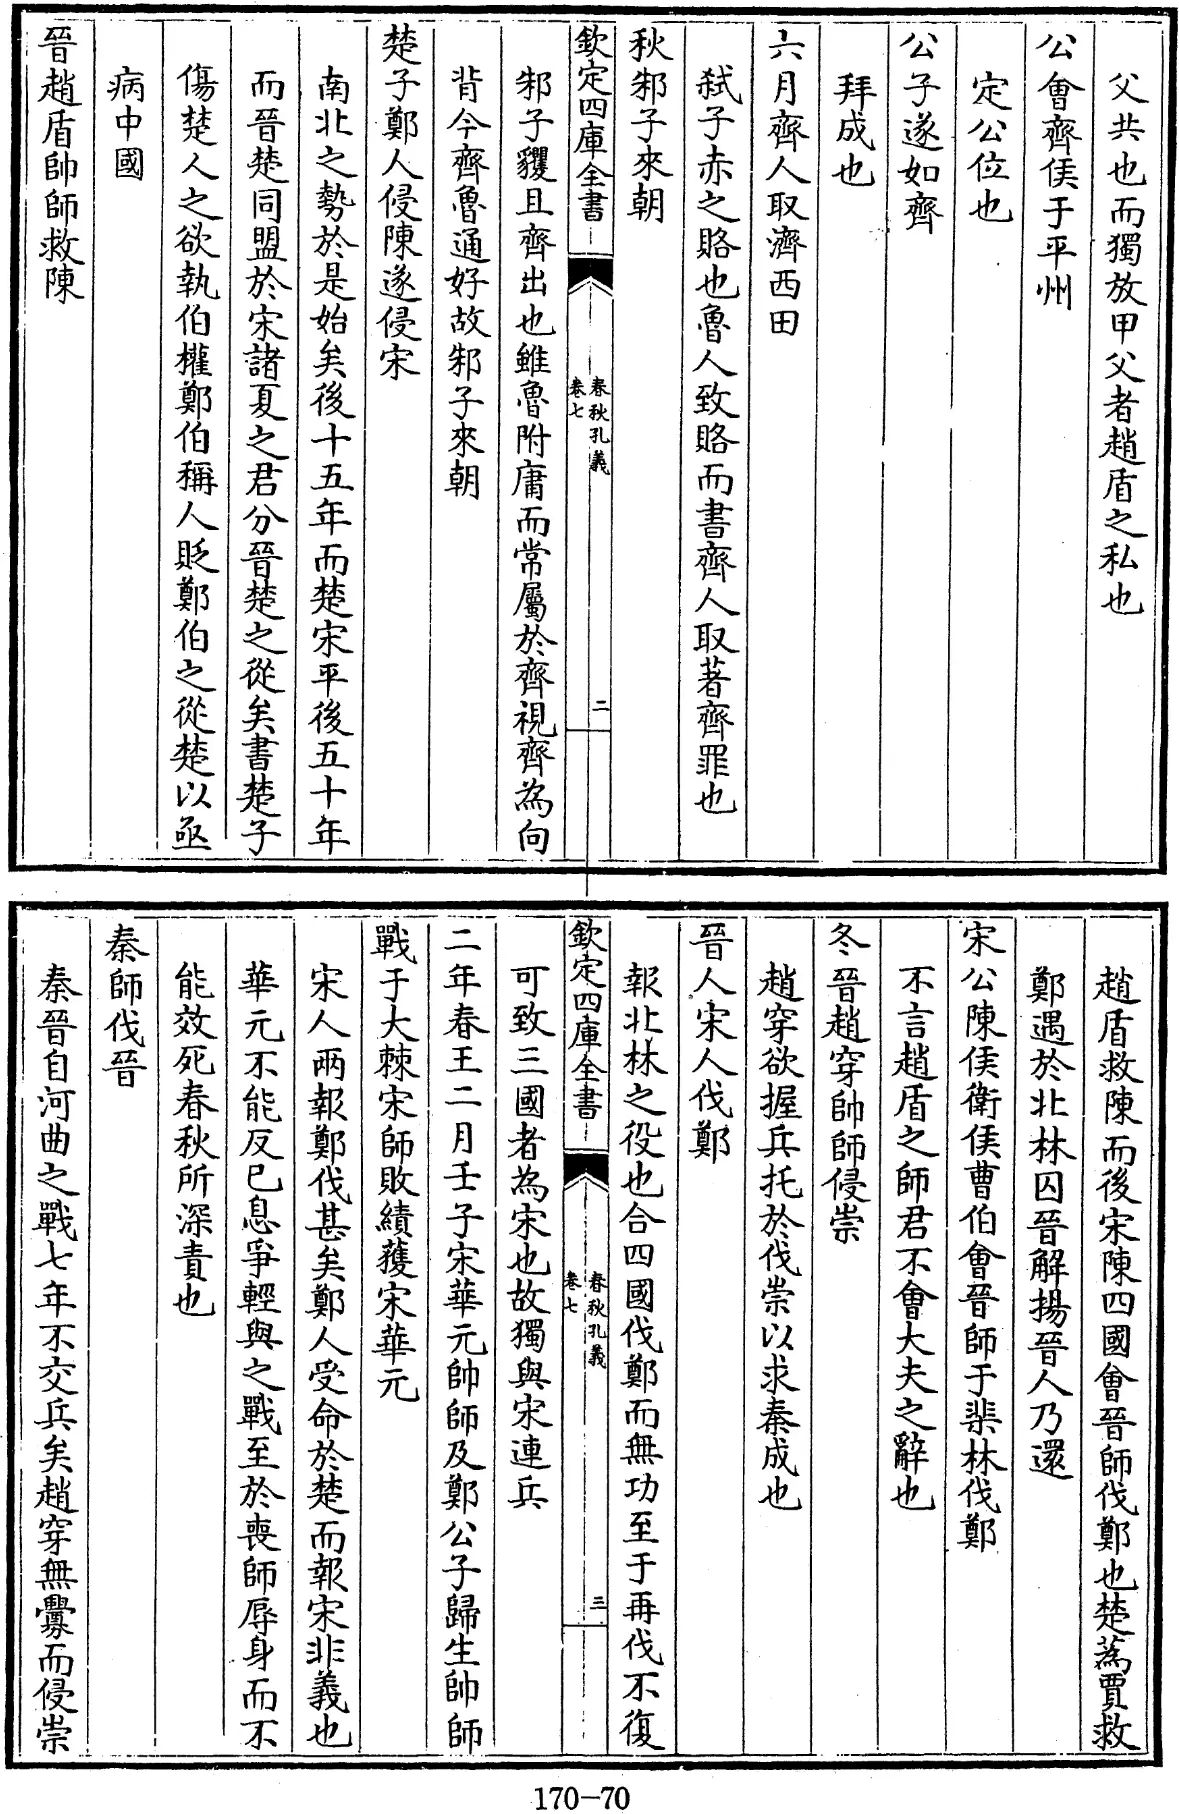 父共也而獨放甲父者趙盾之私也
公會齊侯于平州
定公位也
公子遂如齊
拜成也
六月齊人取濟西田
弒子赤之賂也魯人致賂而書齊人取著齊罪也
秋邾子來朝
欽定四庫全書
春秋孔義
卷七
二
邾子貜且齊出也雖魯附庸而常屬於齊視齊為向
背今齊魯通好故邾子來朝
楚子鄭人侵陳遂侵宋
南北之勢於是始矣後十五年而楚宋平後五十年
而晉楚同盟於宋諸夏之君分晉楚之從矣書楚子
傷楚人之欲執伯權鄭伯稱人貶鄭伯之從楚以亟
病中國
晉趙盾帥師救陳
趙盾救陳而後宋陳四國會晉師伐鄭也楚蒍賈救
鄭遇於北林囚晉解揚晉人乃還
宋公陳侯衛侯曹伯會晉師于棐林伐鄭
不言趙盾之師君不會大夫之辭也
冬晉趙穿帥師侵崇
趙穿欲握兵托於伐崇以求秦成也
晉人宋人伐鄭
報北林之役也合四國伐鄭而無功至于再伐不復
欽定四庫全書
春秋孔義
卷七
三
可致三國者為宋也故獨與宋連兵
二年春王二月壬子宋華元帥師及鄭公子歸生帥師
戰于大棘宋師敗績獲宋華元
宋人兩報鄭伐甚矣鄭人受命於楚而報宋非義也
華元不能反已息爭輕與之戰至於喪師辱身而不
能效死春秋所深責也
秦師伐晉
秦晉自河曲之戰七年不交兵矣趙穿無釁而侵崇
170-70